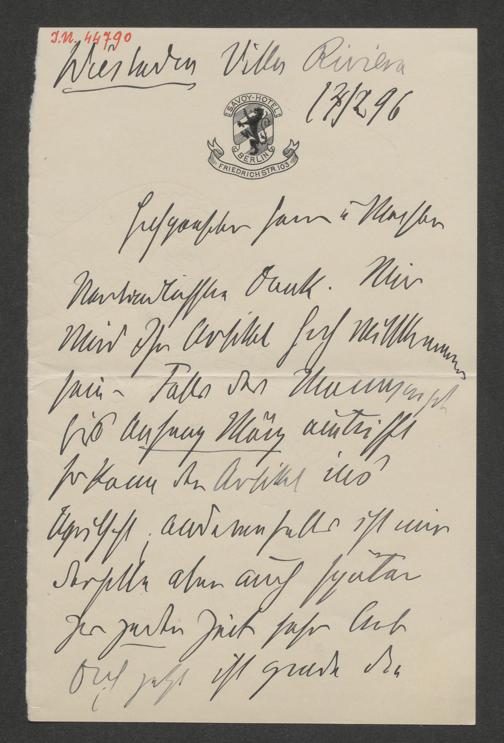 J.N. 44790
Wiesbaden Villa Riviera
SAVOY-HOTEL
BERLIN
FRIEDRICHSTR. 103
17/2 96
Hochgeehrter Herr u Meister
Verbindlichsten Dank. Mir
wird Ihr Artikel hoch willkommen
sein – Falls das Manuscript
bis Anfang März eintrifft
so kann der Artikel ins
Aprilheft, anderenfalls ist mir
derselbe aber auch später
zu jeder Zeit sehr lieb
jetzt ist grade die